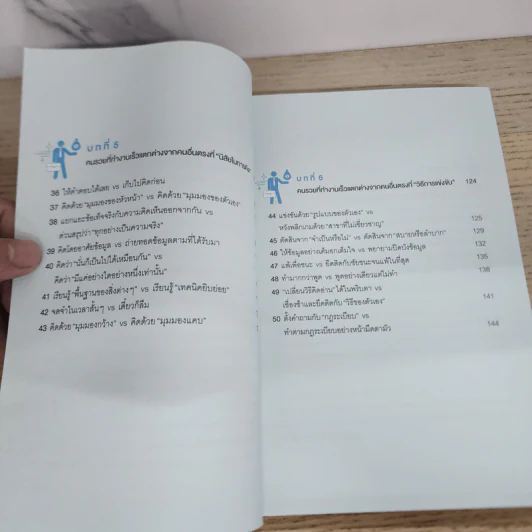 บทที่ 5
คนรวยที่ทำงานเร็วแตกต่างจากคนอื่นตรงที่
36 ให้คำตอบได้เลย vs เก็บไปคิดก่อน
37 คิดด้วย "มุมมองของหัวหน้า" vs คิดด้วย "มุมมองของตัวเอง"
38 แยกแยะข้อเท็จจริงกับความคิดเห็นออกจากกัน vs
ด่วนสรุปว่า "ทุกอย่างเป็นความจริง"
39 คิดโดยอาศัยข้อมูล vs ถ่ายทอดข้อมูลตามที่ได้รับมา
40 คิดว่า "นั่นก็เป็นไปได้เหมือนกัน" vs
คิดว่า "มีแค่อย่างใดอย่างหนึ่งเท่านั้น"
41 เรียนรู้ "พื้นฐานของสิ่งต่างๆ" vs เรียนรู้ "เทคนิคยิบย่อย"
42 จดจำในเวลาสั้นๆ vs เดี๋ยวก็ลืม
43 คิดด้วย "มุมมองกว้าง" vs คิดด้วย "มุมมองแคบ"
บทที่ 6
คนรวยที่ทำงานเร็วแตกต่างจากคนอื่นตรงที่ "วิธีการแข่งขัน" 124
44 แข่งขันด้วย "รูปแบบของตัวเอง" vs
หวังพลิกเกมด้วย "สาขาที่ไม่เชี่ยวชาญ" 125
45 ตัดสินจาก "จำเป็นหรือไม่" vs ตัดสินจาก "สบายหรือลำบาก" 129
46 ให้ข้อมูลอย่างเต็มอกเต็มใจ vs พยายามปิดบังข้อมูล 132
47 แพ้เพื่อชนะ vs ยึดติดกับชัยชนะจนแพ้ในที่สุด 135
48 ทำมากกว่าพูด vs พูดอย่างเดียวแต่ไม่ทำ 138
49 "เปลี่ยนวิธีคิดอ่าน" ได้ในพริบตา vs
เชื่องช้าและยึดติดกับ "วิธีของตัวเอง" 141
50 ตั้งคำถามกับ "กฎระเบียบ" vs
ทำตามกฎระเบียบอย่างหน้ามืดตามัว 144